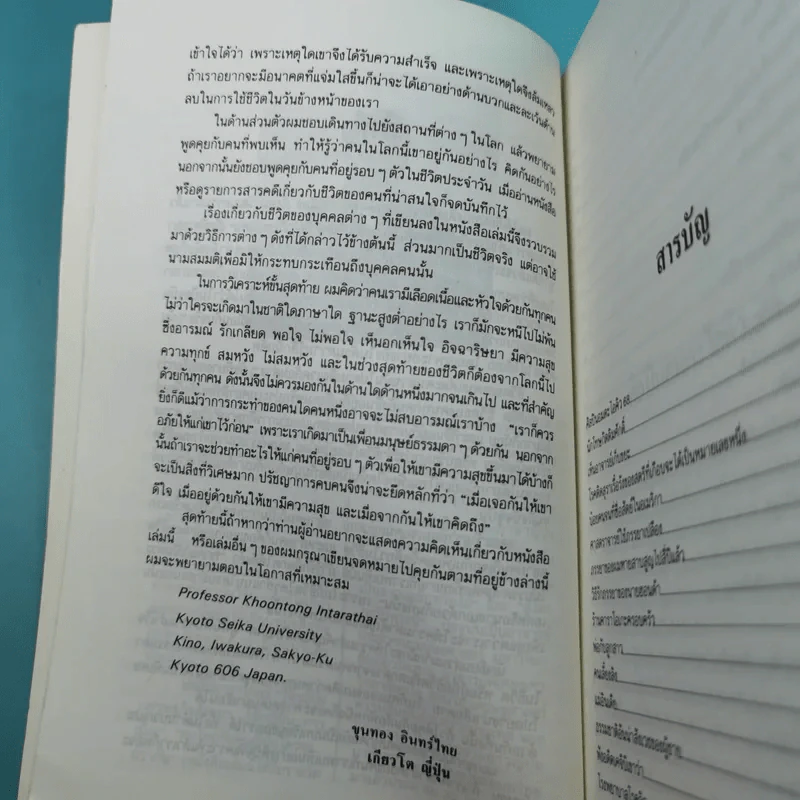 เข้าใจได้ว่า เพราะเหตุใดเขาจึงได้รับความสำเร็จ และเพราะเหตุใดจึงล้มเหลว
ถ้าเราอยากจะมีอนาคตที่แจ่มใสขึ้นก็น่าจะได้เอาอย่างด้านบวกและละเว้นด้าน
ลบในการใช้ชีวิตในวันข้างหน้าของเรา
ในด้านส่วนตัวผมชอบเดินทางไปยังสถานที่ต่าง ๆ ในโลก แล้วพยายาม
พูดคุยกับคนที่พบเห็น ทำให้รู้ว่าคนในโลกนี้เขาอยู่กันอย่างไร คิดกันอย่างไร
นอกจากนั้นยังชอบพูดคุยกับคนที่อยู่รอบ ๆ ตัวในชีวิตประจำวัน เมื่ออ่านหนังสือ
หรือดูรายการสารคดีเกี่ยวกับชีวิตของคนที่น่าสนใจก็จดบันทึกไว้
เรื่องเกี่ยวกับชีวิตของบุคคลต่าง ๆ ที่เขียนลงในหนังสือเล่มนี้จึงรวบรวม
มาด้วยวิธีการต่าง ๆ ดังที่ได้กล่าวไว้ข้างต้นนี้ ส่วนมากเป็นชีวิตจริง แต่อาจใช้
นามสมมติเพื่อมิให้กระทบกระเทือนถึงบุคคลคนนั้น
ในการวิเคราะห์ขั้นสุดท้าย ผมคิดว่าคนเรามีเลือดเนื้อและหัวใจด้วยกันทุกคน
ไม่ว่าใครจะเกิดมาในชาติใดภาษาใด ฐานะสูงต่ำอย่างไร เราก็มักจะหนีไปไม่พ้น
ซึ่งอารมณ์ รักเกลียด พอใจ ไม่พอใจ เห็นอกเห็นใจ อิจฉาริษยา มีความสุข
ความทุกข์ สมหวัง ไม่สมหวัง และในช่วงสุดท้ายของชีวิตก็ต้องจากโลกนี้ไป
ด้วยกันทุกคน ดังนั้นจึงไม่ควรมองกันในด้านใดด้านหนึ่งมากจนเกินไป และที่สำคัญ
ยิ่งก็ดีแม้ว่าการกระทำของคนใดคนหนึ่งอาจจะไม่สบอารมณ์เราบ้าง "เราก็ควร
อภัยให้แก่เขาไว้ก่อน" เพราะเราเกิดมาเป็นเพื่อนมนุษย์ธรรมดา ๆ ด้วยกัน นอกจาก
นั้นถ้าเราจะช่วยทำอะไรให้แก่คนที่อยู่รอบ ๆ ตัวเพื่อให้เขามีความสุขขึ้นมาได้บ้างก็
จะเป็นสิ่งที่วิเศษมาก ปรัชญาการคบคนจึงน่าจะยึดหลักที่ว่า "เมื่อเจอกันให้เขา
ดีใจ เมื่ออยู่ด้วยกันให้เขามีความสุข และเมื่อจากกันให้เขาคิดถึง"
สุดท้ายนี้ถ้าหากว่าท่านผู้อ่านอยากจะแสดงความคิดเห็นเกี่ยวกับหนังสือ
เล่มนี้ หรือเล่มอื่น ๆ ของผมกรุณาเขียนจดหมายไปคุยกันตามที่อยู่ข้างล่างนี้
ผมจะพยายามตอบในโอกาสที่เหมาะสม
Professor Khoontong Intarathai
Kyoto Seika University
Kino, Iwakura, Sakyo-Ku
Kyoto 606 Japan.
ขุนทอง อินทร์ไทย
เกียวโต ญี่ปุ่น
สารบัญ
ร้านคาราโอเกะครอบครัว
พ่อกับลูกสาว
คนเลี้ยงลิง